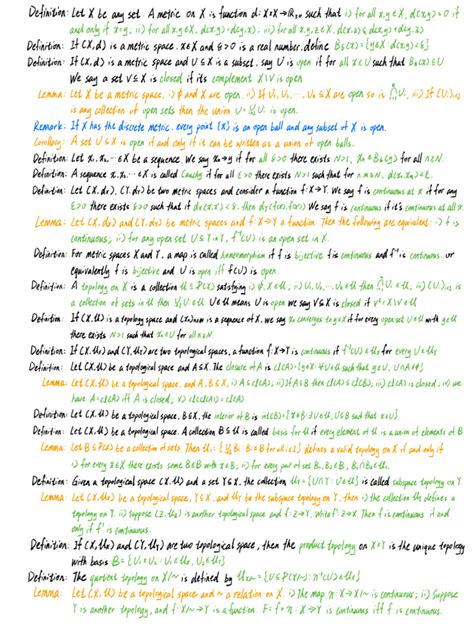 Definition: Let X be any set. A metric on X is function d: X×X→R≥0 such that i) for all x,y∈X, d(x,y)=0 if
and only if x=y. ii) for all x,y∈X, d(x,y)=d(y,x). iii) for all x,y,z∈X, d(x,z)≤d(x,y)+d(y,z)
Definition: If (X,d) is a metric space. x∈X and ε>0 is a real number. define Bε(x)={y∈X: d(x,y)<ε}
Definition: If (X,d) is a metric space and U⊆X is a subset. say U is open if for all x∈U such that Bε(x)⊆U
We say a set V⊆X is closed if its complement X\V is open
Lemma: Let X be a metric space. i) ∅ and X are open. ii) If U₁, U₂, ... Uₙ⊆X are open so is ∩Uᵢ. iii) If {Uᵢ}
is any collection of open sets then the union U=∪Uᵢ is open.
Remark: If X has the discrete metric. every point {x} is an open ball and any subset of X is open.
Corollary: A set U⊆X is open if and only if it can be written as a union of open balls.
Definition: Let x₁, x₂, ...∈X be a sequence. We say xₙ→y if for all ε>0 there exists N≥1, xₙ∈Bε(y) for all n≥N.
Definition: A sequence x₁, x₂, ...∈X is called Cauchy if for all ε>0 there exists N≥1 such that for n,m≥N, d(xₙ,xₘ)<ε.
Definition: Let (X,dx), (Y,dY) be two metric spaces and consider a function f:X→Y. We say f is continuous at x if for any
ε>0 there exists δ>0 such that if dx(x,x')<δ. then dY(f(x),f(x'))<ε. We say f is continuous if it's continuous at all x.
Lemma: Let (X,dx) and (Y,dY) be metric spaces and f:X→Y a function. Then the following are equivalent: i) f is
continuous; ii) for any open set U⊆Y in Y, f⁻¹(U) is an open set in X.
Definition: For metric spaces X and Y, a map is called homeomorphism if f is bijective f is continuous and f⁻¹ is continuous. or
equivalently f is bijective and U is open iff f(U) is open.
Definition: A topology on X is a collection U⊆P(X) satisfying i) ∅,X∈U; ii) U₁, U₂, ... Uₙ∈U then ∩Uᵢ∈U. iii) {Uᵢ} is
a collection of sets in U then ∪Uᵢ∈U. U∈U means U is open we say V⊆X is closed if Vᶜ=X\V∈U
Definition: If (X,U) is a topological space and (xₙ) is a sequence of X. we say xₙ converges to y∈X if for every open set U∈U with y∈U
there exists N≥1 such that xₙ∈U for all n≥N.
Definition: If (X,Ux) and (Y,UY) are two topological spaces, a function f:X→Y is continuous if f⁻¹(U)∈Ux for every U∈UY
Definition: Let (X,U) be a topological space and A⊆X. The closure of A is cl(A)={y∈X: ∀U∈U such that y∈U, U∩A≠∅}
Lemma: Let (X,U) be a topological space, and A,B⊆X, i) A⊆cl(A), ii) if A⊆B then cl(A)⊆cl(B), iii) cl(A) is closed. iv) we
have A=cl(A) iff A is closed, v) cl(cl(A))=cl(A)
Definition: Let (X,U) be a topological space, B⊆X. the interior of B is int(B)={x∈B: ∃U∈U, U⊆B such that x∈U}
Definition: Let (X,U) be a topological space. A collection B⊆U is called basis for U if every element of U is a union of elements of B
Lemma: Let B⊆P(X) be a collection of sets. Then U:={∪Bᵢ: Bᵢ∈B for all i∈I} defines a valid topology on X if and only if
i) for every x∈X there exists some B∈B with x∈B; ii) for every pair of set B₁,B₂∈B, B₁∩B₂∈U.
Definition: Given a topological space (X,U) and a set Y⊆X, the collection UY={U∩Y: U∈U} is called subspace topology on Y.
Lemma: Let (X,U) be a topological space, Y⊆X, and UY be the subspace topology on Y, then i) the collection UY defines a
topology on Y. ii) suppose (Z,Uz) is another topological space and f:Z→Y. Write f':Z→X. Then f is continuous if and
only if f' is continuous.
Definition: If (X,Ux) and (Y,UY) are two topological space, then the product topology on X×Y is the unique topology
with basis B={U₁×U₂: U₁∈Ux, U₂∈UY}
Definition: The quotient topology on X/~ is defined by Ux/~={U⊆P(X/~): π⁻¹(U)∈Ux}
Lemma: Let (X,U) be a topological space and ~ a relation on X. i) The map π:X→X/~ is continuous; ii) Suppose
Y is another topology, and f:X/~→Y is a function. F=f∘π:X→Y is continuous iff f is continuous.